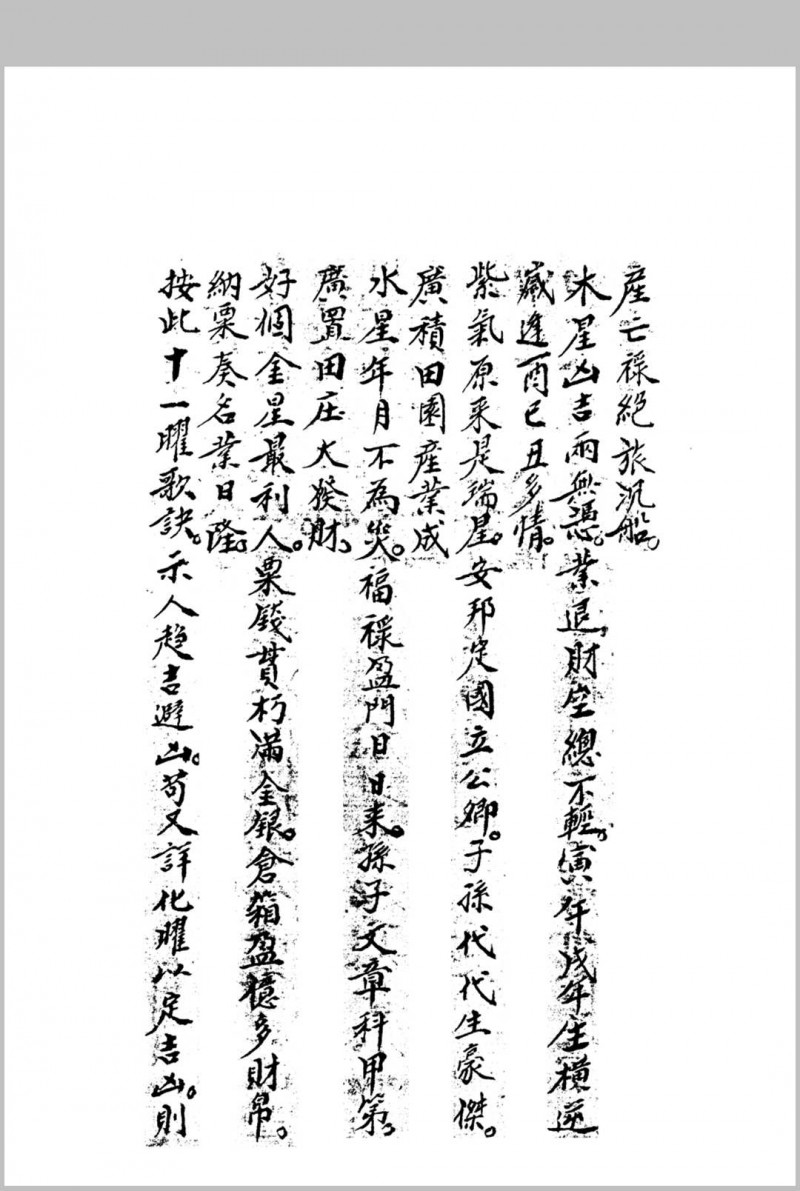 產亡祿絕旅汎船。
木星凶吉兩無憑。業退財空總不輕。寅年戌年生橫逆
歲逢酉巳丑多情。
紫氣原来是瑞星。安邦定國立公卿。子孫代代生豪傑。
廣積田園產業成
水星年月不為災。福祿盈門日日来。孫子文章科甲第。
廣置田庄大發財。
好個金星最利人。粟錢貫朽滿金銀。倉箱盈億多財帛。
納粟奏名業日隆。
按此十一曜歌訣。示人趋吉避凶。苟又詳化曜以定吉凶。則